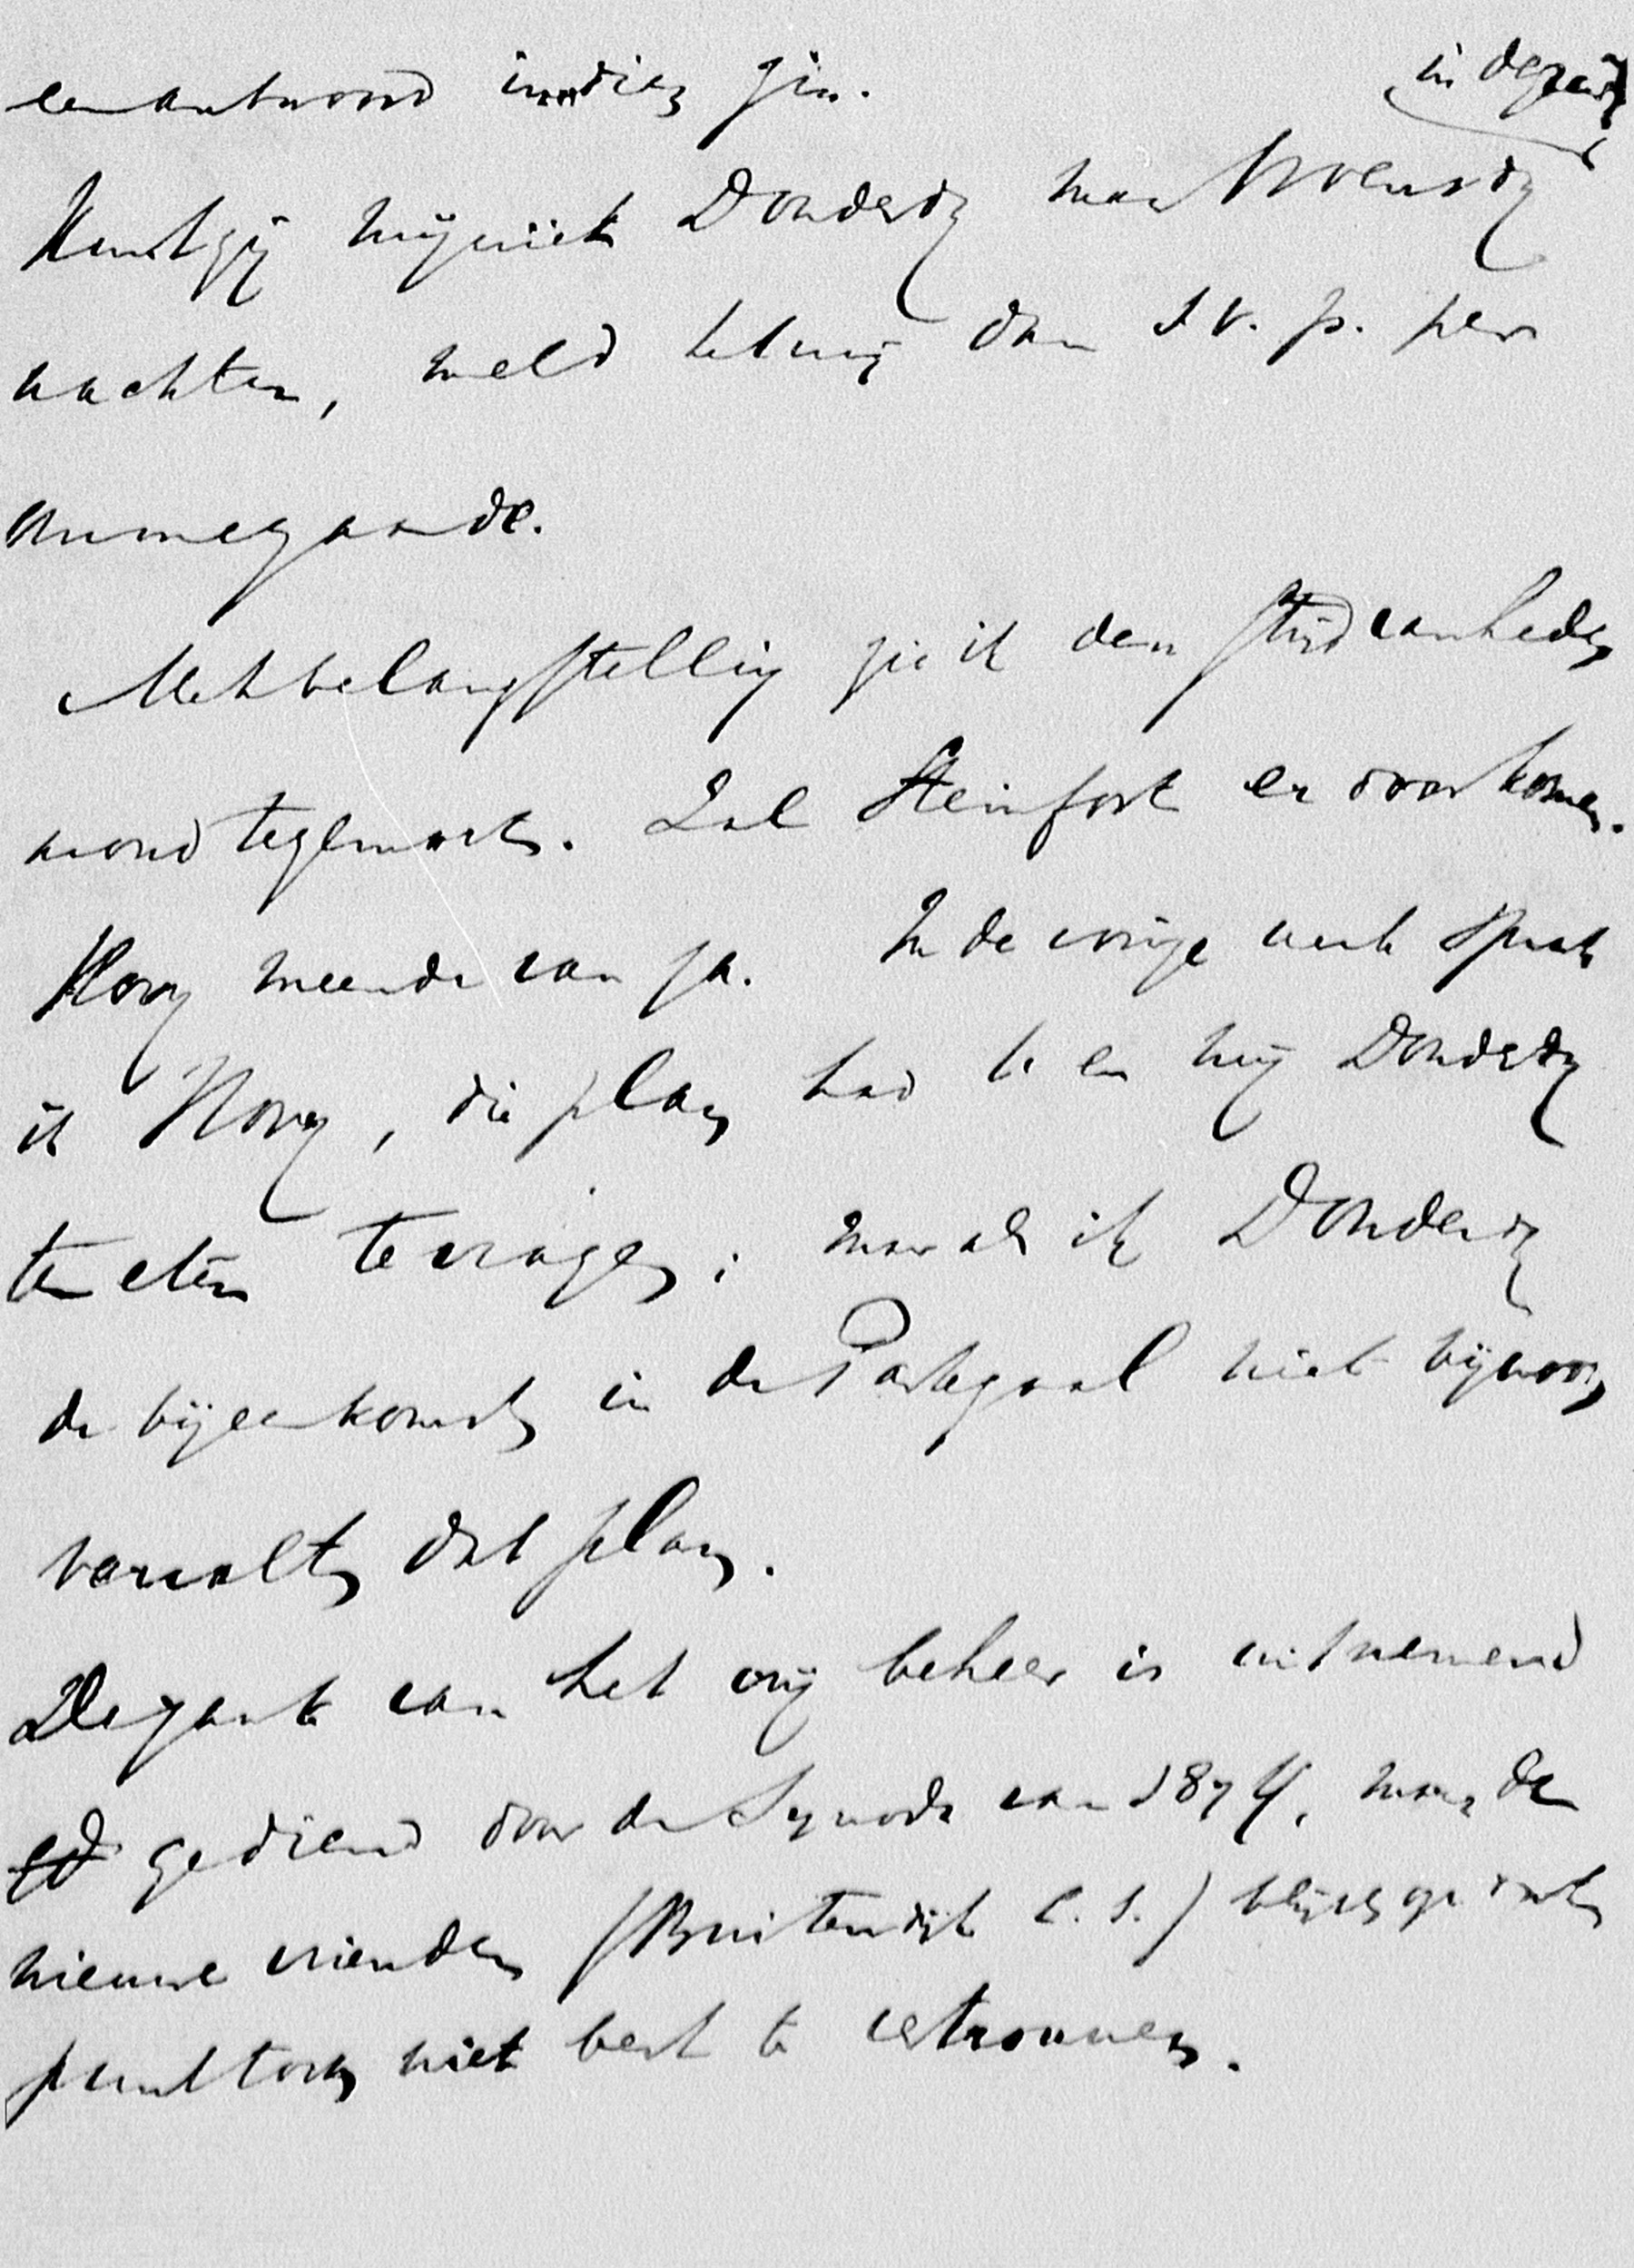 een antwoord in dien zin.
in dezen
Kunt gij mij niet Donderdag maar Woensdag
wachten, meld het mij dan s. v. p. per
ommegaande.
Met belangstelling zie ik den strijd van heden
avond tegemoet. Zal Steinfort er door komen.
Hovy meende van ja. In de vorige week sprak
ik Hovy, die plan had U en mij Donderdag
ten eten te vragen; maar als ik Donderdag
de bijeenkomst in de Pastegaal niet bijwoon
vervalt dat plan.
De zaak van het vrij beheer is uitnemend
gediend door de Synode van 1874, maar de
nieuwe vrienden (Buitendijk c. s.) blijven op dat
punt toch niet best te vertrouwen.